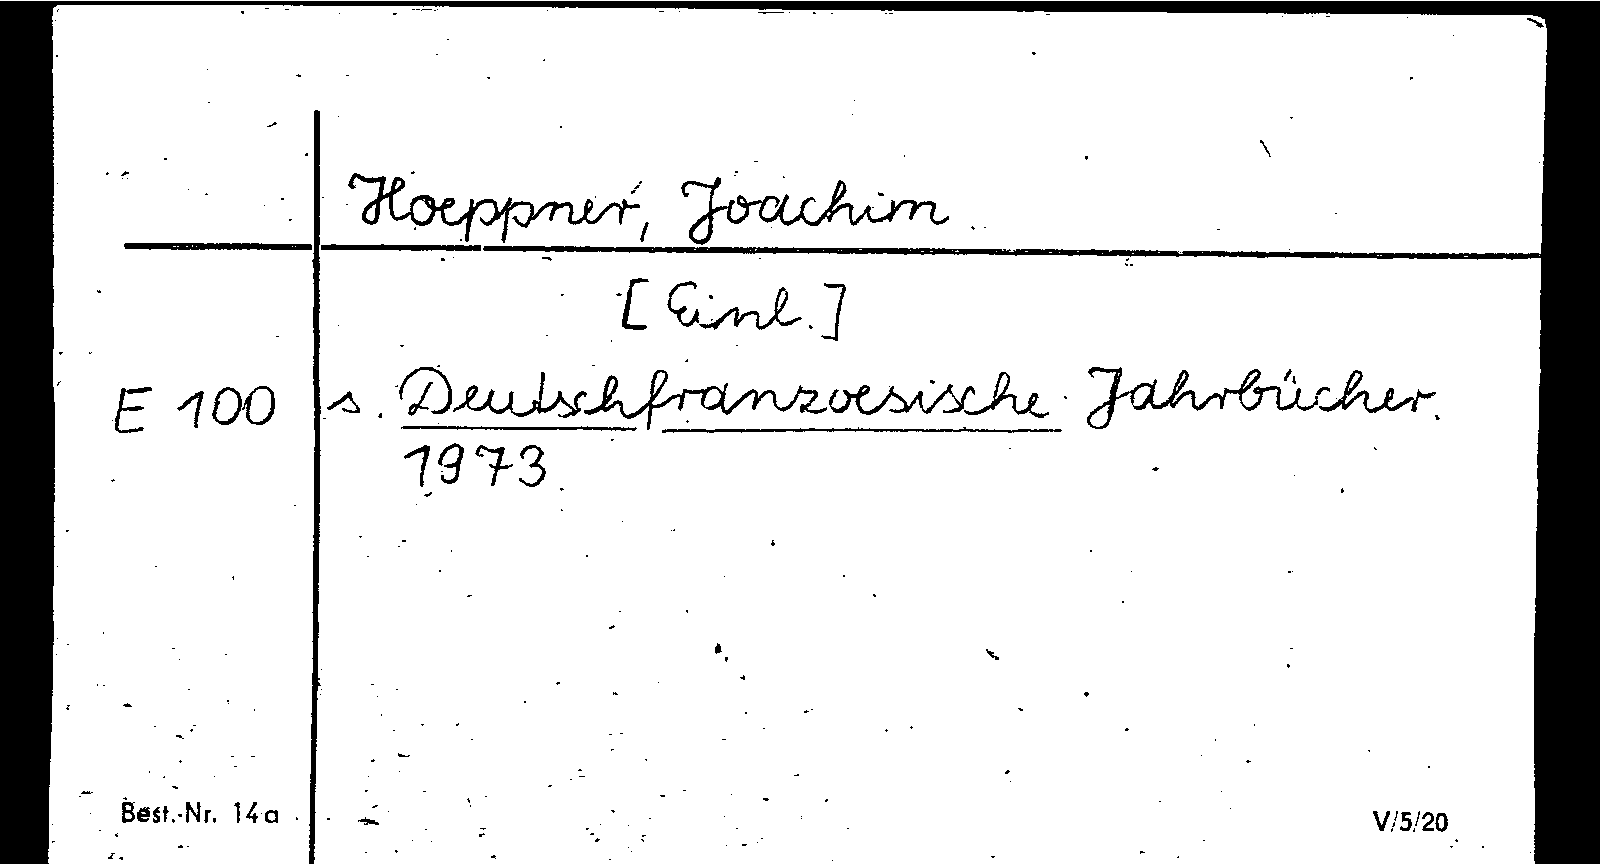 Hoeppner, Joachim
[Einl.]
E 100 s. Deutschfranzoesische Jahrbücher.
1973
Best.-Nr. 14a V/5/20